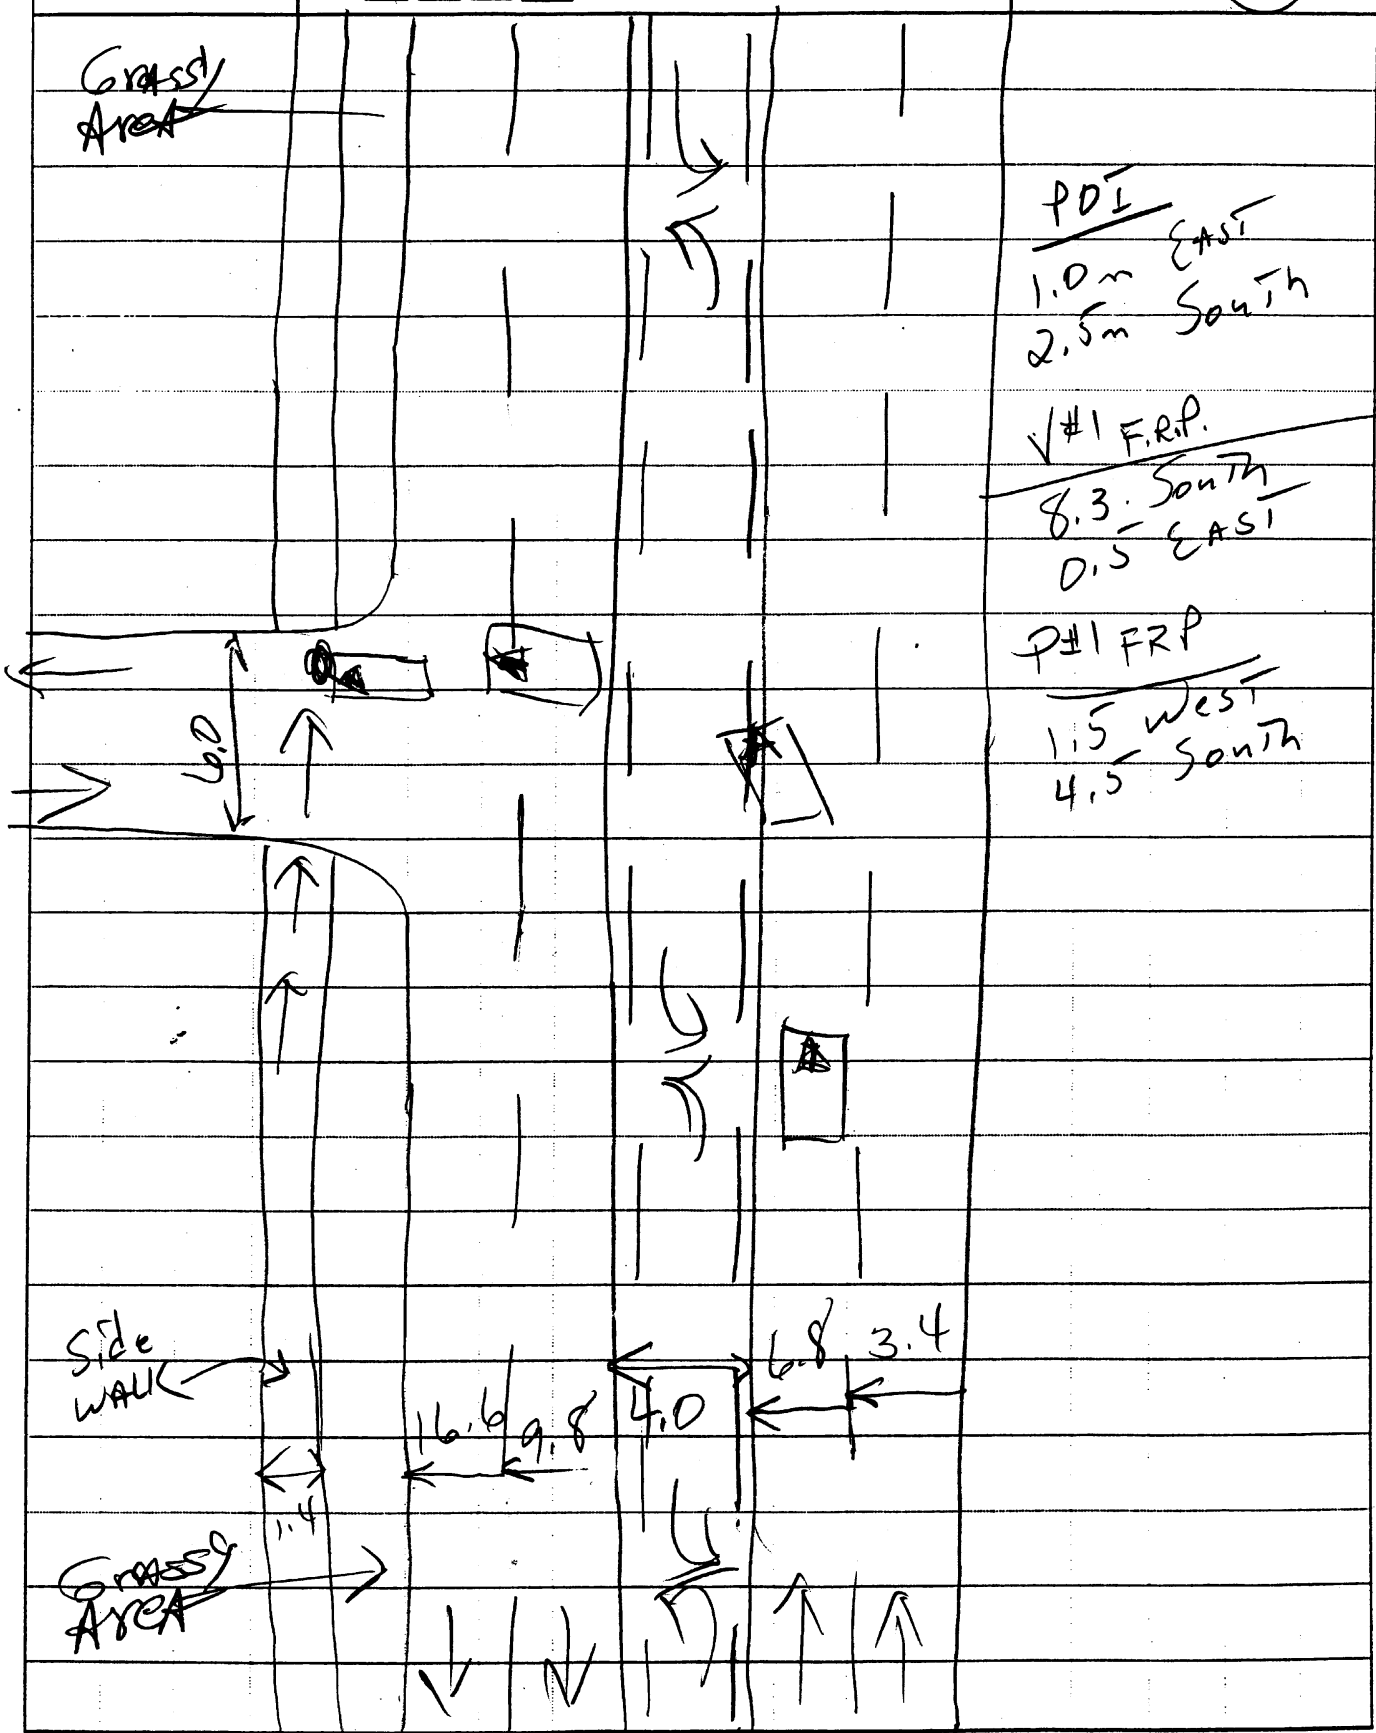 Grassy
Area
POI
1.0m East
2.5m South
V#1 F.R.P.
8.3. South
0.5 EAST
P#1 FRP
1.5 West
4.5 South
6.0
Side
WALK
16.6
9.8
4.0
6.8
3.4
1.4
Grassy
AreA